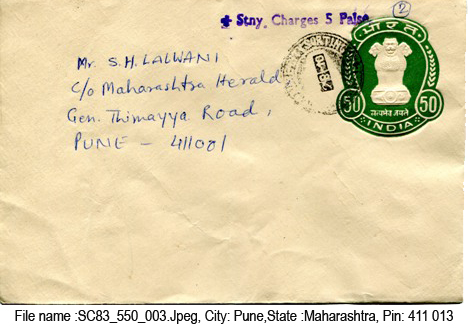 + Stny. Charges 5 Paise
2
भारत
50
50
सत्यमेव जयते
INDIA
Mr. S.H. LALWANI
C/o Maharashtra Herald
Gen. Thimayya Road,
PUNE - 411001
File name :SC83_550_003.Jpeg, City: Pune,State :Maharashtra, Pin: 411 013